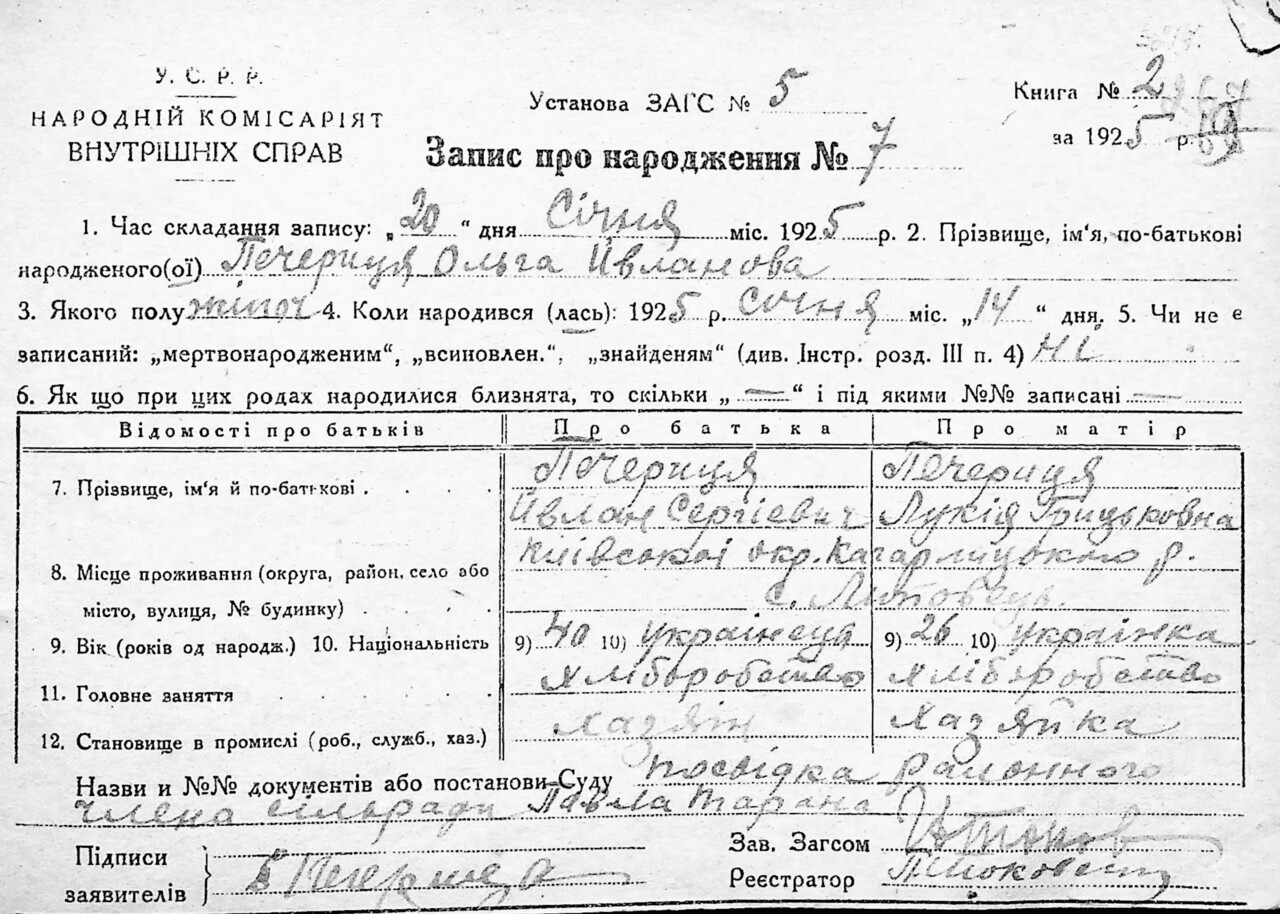 У. С. Р. Р.
НАРОДНІЙ КОМІСАРІЯТ
ВНУТРІШНІХ СПРАВ
Установа ЗАГС № 5
Запис про народження № 7
Книга № 2
за 1925 р.
1. Час складання запису: „20“ дня Січня міс. 1925 р. 2. Прізвище, ім‘я, по-батькові
народженого(ої) Печериця Ольга Ивланова
3. Якого полу жіноч 4. Коли народився (лась): 1925 р. січня міс. „14“ дня. 5. Чи не є
записаний: „мертвонародженим“, „всиновлен.“, „знайденям“ (див. Інстр. розд. III п. 4) Ні
6. Як що при цих родах народилися близнята, то скільки „—“ і під якими №№ записані —
Відомості про батьків Про батька Про матір
7. Прізвище, ім‘я й по-батькові . . . . Печериця Печериця
Ивлан Сергіевич Лукія Грицьковна
8. Місце проживання (округа, район, село або Київської окр. Кагарлицького р.
місто, вулиця, № будинку) . . . . с. Липовець
9. Вік (років од народж.) 10. Національність 9) 40 10) українець 9) 26 10) українка
11. Головне заняття . . . . . Хліборобство Хліборобство
12. Становище в промислі (роб., служб., хаз.) Хазяін Хазяйка
Назви и №№ документів або постанови Суду посвідка районного
члена сільради Павла Тарана
Підписи
заявителів
Печериця
Зав. Загсом
Реєстратор